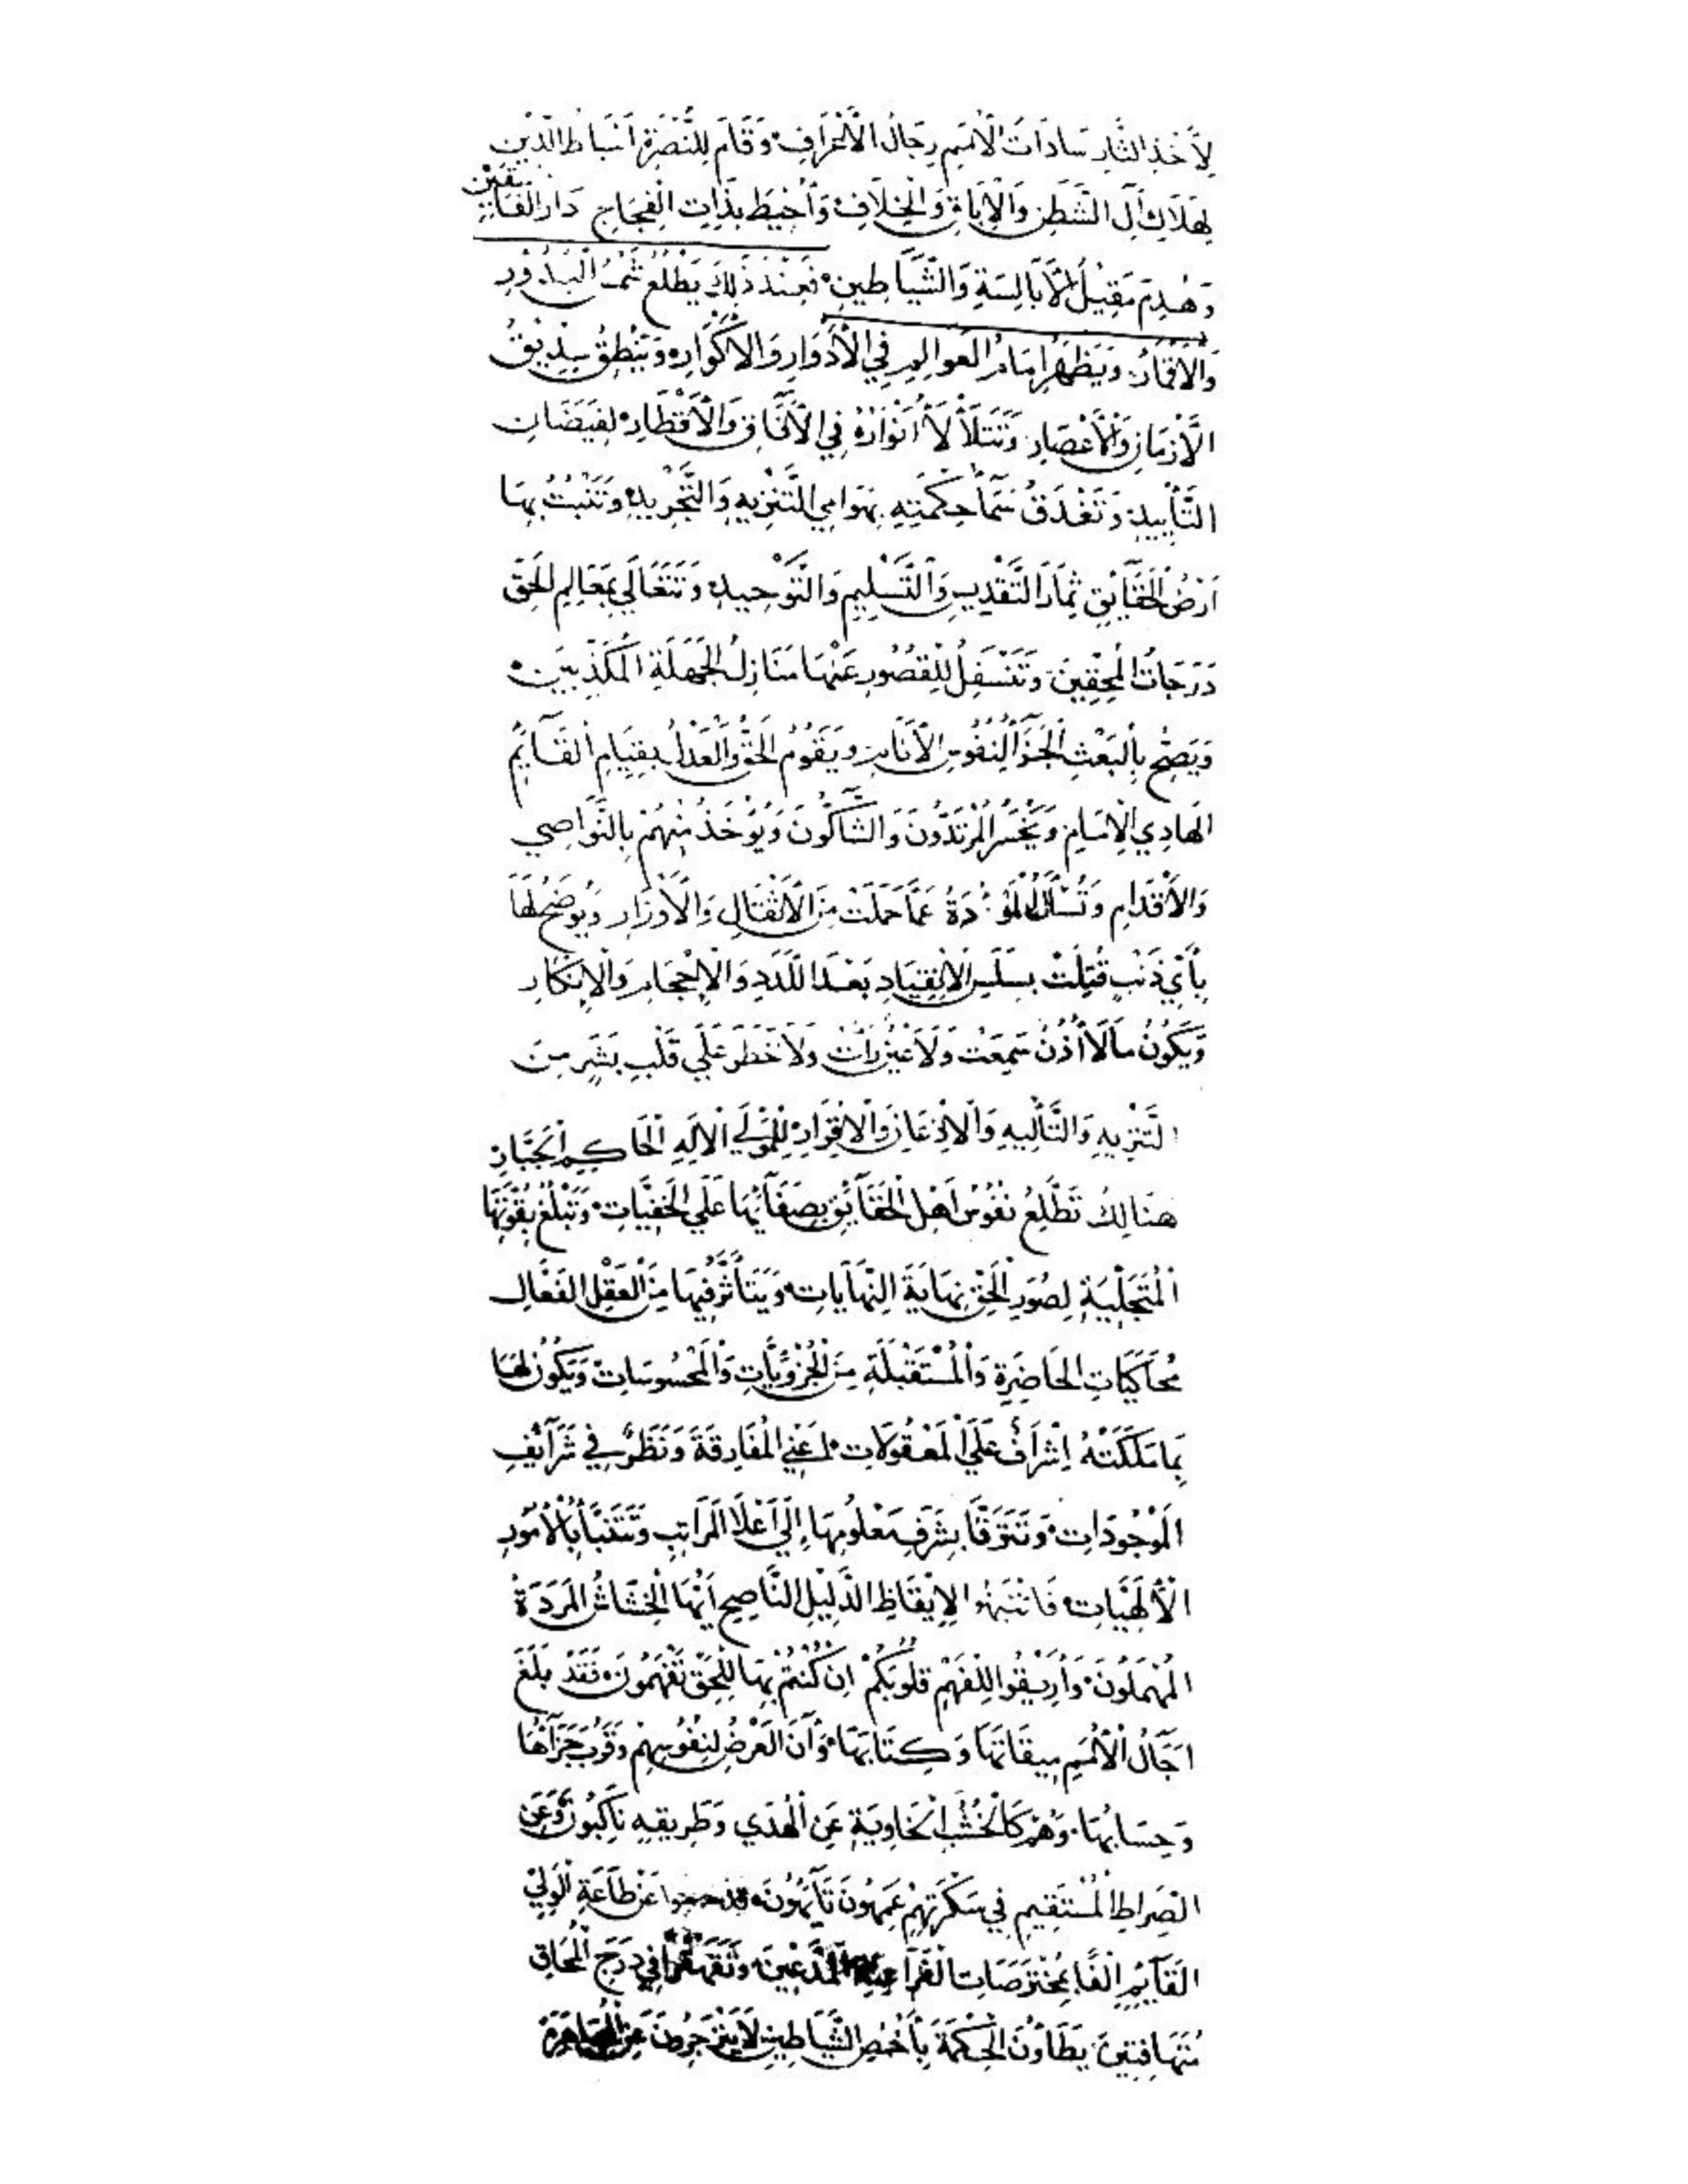 لِأَخْذِ الثَّارِ سَادَاتُ الْأُمَمِ رِجَالُ الْأَعْرَافِ وَقَامَ لِلنُّصْرَةِ أَسْبَاطُ الدِّينِ
لِهَلَاكِ آلِ الشَّطَنِ وَالْإِبَاقِ وَالْخِلَافِ وَأُحِيطَ بِذَاتِ الْفِجَاجِ دَارِ الْفَاسِقِينَ
وَهُدِمَ مَقِيلُ الْأَبَالِسَةِ وَالشَّيَاطِينِ فَعِنْدَ ذَلِكَ يَطْلُعُ شَمْسُ الْبُدُورِ
وَالْأَقْمَارِ وَيَظْهَرُ إِمَامُ الْعَوَالِمِ فِي الْأَدْوَارِ وَالْأَكْوَارِ وَيَنْطِقُ
الْأَزْمَانِ وَالْأَعْصَارِ وَتَتَلَأْلَأُ أَنْوَارُهُ فِي الْآفَاقِ وَالْأَقْطَارِ لِفَيَضَانِ
التَّأْيِيدِ وَتَغْدَقُ سَمَآ حِكْمَتِهِ بِهَوَامِي التَّنْزِيهِ وَالتَّجْرِيدِ وَتَنْبُتُ بِهَا
اَرْضُ الْحَقَآئِقِ ثِمَارَ التَّقْدِيسِ وَالتَّسْلِيمِ وَالتَّوْحِيدِ وَتَتَعَالَى بِمَعَالِمِ الْحَقِّ
دَرَجَاتُ الْمُحِقِّينَ وَتَتَسَفَّلُ لِلْقُصُورِ عَنْهَا مَنَازِلُ الْجَهَلَةِ الْمُكَذِّبِينَ
وَيَصِحُّ بِالْبَعْثِ الْجَزَآ لِنُفُوسِ الْأَنَامِ وَيَقُومُ الْحَقُّ وَالْعَدْلُ بِقِيَامِ الْقَآئِمِ
الْهَادِي الْإِمَامِ وَيَخْسَرُ الْمُرْتَدُّونَ وَالشَّاكُّونَ وَيُؤْخَذُ مِنْهُمْ بِالنَّوَاصِي
وَالْأَقْدَامِ وَتُسْأَلُ الْمَوْءُدَةُ عَمَّا حَمَلَتْ مِنَ الْأَثْقَالِ وَالْأَوْزَارِ وَيُوضَحُ لَهَا
بِأَيِّ ذَنْبٍ قُتِلَتْ بِسَلَسِ الْاِنْقِيَادِ بَعْدَ اللَّدَدِ وَالْإِحْجَامِ وَالْإِنْكَارِ
وَيَكُونُ مَا لَا أُذُنٌ سَمِعَتْ وَلَا عَيْنٌ رَأَتْ وَلَا خَطَرَ عَلَى قَلْبِ بَشَرٍ مِنَ
التَّنْزِيهِ وَالتَّأْلِيهِ وَالْإِذْعَانِ وَالْإِقْرَارِ لِلْمَوْلَى الْإِلَهِ الْحَاكِمِ الْجَبَّارِ
هُنَالِكَ تَطَّلِعُ نُفُوسُ اَهْلِ الْحَقَآئِقِ بِصَفَآئِهَا عَلَى الْخَفِيَّاتِ وَتَبْلُغُ بِقُوَّتِهَا
الْمُتَجَلِّيَةِ لِصُوَرِ الْحَقِّ نِهَايَةَ النِّهَايَاتِ وَيَتَأَثَّرُ فِيهَا مِنَ الْعَقْلِ الْفَعَّالِ
مُحَاكِيَاتِ الْحَاضِرَةِ وَالْمُسْتَقْبَلَةِ مِنَ الْجُزْوِيَّاتِ وَالْمَحْسُوسَاتِ وَيَكُونُ لَهَا
بِمَا مَلَكَتْهُ اِشْرَافٌ عَلَى الْمَعْقُولَاتِ اَعْنِي الْمُفَارِقَةَ وَنَظَرٌ فِي شَرَآئِفِ
الْمَوْجُودَاتِ وَتَتَرَقَّا بِشَرَفِ مَعْلُومِهَا إِلَى اَعْلَا الْمَرَاتِبِ وَتَتَنَبَّأُ بِالْأُمُورِ
الْإِلَهِيَّاتِ فَانْتَبِهُوا لِإِيْقَاظِ الدَّلِيلِ النَّاصِحِ اَيُّهَا الْخِشَاشُ الْمَرَدَةُ
الْمُهْمَلُونَ وَأَرِيقُوا لِلْفَهْمِ قُلُوبَكُمْ اِنْ كُنْتُمْ بِهَا لِلْحَقِّ تَفْهَمُونَ فَقَدْ بَلَغَ
اَجَالُ الْأُمَمِ مِيقَاتَهَا وَكِتَابَهَا وَآنَ الْعَرْضُ لِنُفُوسِهِمْ وَقَرُبَ جَزَآؤُهَا
وَحِسَابُهَا وَهُمْ كَالْخُشُبِ الْخَاوِيَةِ عَنِ الْهُدَى وَطَرِيقِهِ نَاكِبُونَ وَعَنِ
الصِّرَاطِ الْمُسْتَقِيمِ فِي سَكْرَتِهِمْ عَمِهُونَ تَآئِهُونَ قَدْ عَنْ طَاعَةِ الْوَلِيِّ
الْقَآئِمِ اَنِفًا بِمُخْتَرَصَاتِ الْفَرَاعِنَةِ الْمُدَّعِينَ وَتَقَهْقَرُوا فِي دَرَجِ الْمُحَاقِ
مُتَهَافِتِينَ يَطَأُونَ الْحِكْمَةَ بِأَخْمُصِ الشَّيَاطِينِ لَا يَنْزَجِرُونَ عَنِ